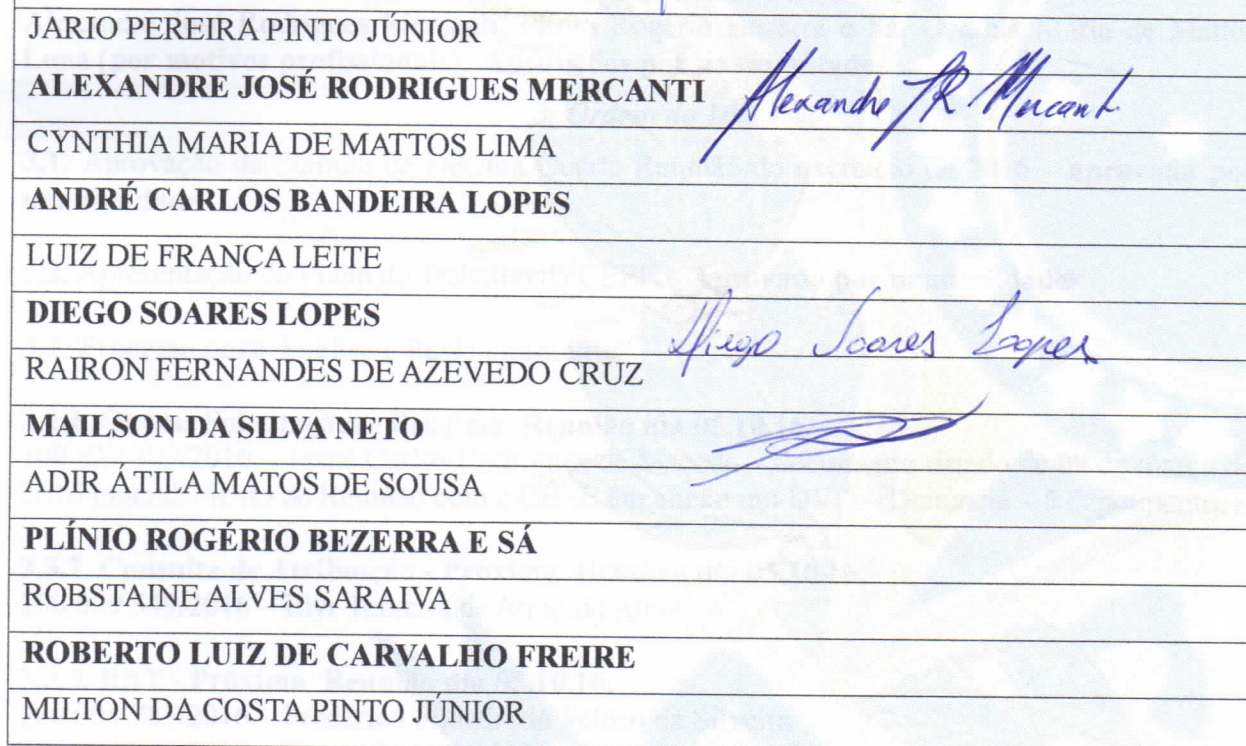 JARIO PEREIRA PINTO JÚNIOR
ALEXANDRE JOSÉ RODRIGUES MERCANTI Alexandre JR Mercanti
CYNTHIA MARIA DE MATTOS LIMA
ANDRÉ CARLOS BANDEIRA LOPES
LUIZ DE FRANÇA LEITE
DIEGO SOARES LOPES Diego Soares Lopes
RAIRON FERNANDES DE AZEVEDO CRUZ
MAILSON DA SILVA NETO
ADIR ÁTILA MATOS DE SOUSA
PLÍNIO ROGÉRIO BEZERRA E SÁ
ROBSTAINE ALVES SARAIVA
ROBERTO LUIZ DE CARVALHO FREIRE
MILTON DA COSTA PINTO JÚNIOR